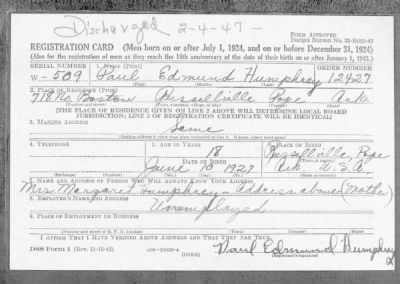 Discharged 2-4-47-
FORM APPROVED
Budget Bureau No.
REGISTRATION CARD (Men born on or after July 1, 1924, and on or before December 31, 1924)
(Also for the registration of men as they reach the 18th anniversary of the date of their birth on or after January 1, 1943.)
SERIAL NUMBER 1. NAME (Print) ORDER NUMBER
W-509 Paul Edmund Humphrey 12427
(First) (Middle) (Last)
2. PLACE OF RESIDENCE (Print)
718 No. Boston Russellville Pope Ark.
[THE PLACE OF RESIDENCE GIVEN ON LINE 2 ABOVE WILL DETERMINE LOCAL BOARD
JURISDICTION; LINE 2 OF REGISTRATION CERTIFICATE WILL BE IDENTICAL]
3. MAILING ADDRESS
Same
4. TELEPHONE 5. AGE IN YEARS 6. PLACE OF BIRTH
18 Russellville Pope
DATE OF BIRTH
June Ark. U.S.A.
7. NAME AND ADDRESS OF PERSON WHO WILL ALWAYS KNOW YOUR ADDRESS
Mrs Margaret Humphrey - Address above (Mother)
8. EMPLOYER'S NAME AND ADDRESS
Unemployed
9. PLACE OF EMPLOYMENT OR BUSINESS
I AFFIRM THAT I HAVE VERIFIED ABOVE ANSWERS AND THAT THEY ARE TRUE.
DSS Form 1 (OVER) Paul Edmund Humphrey
(Registrant's signature)